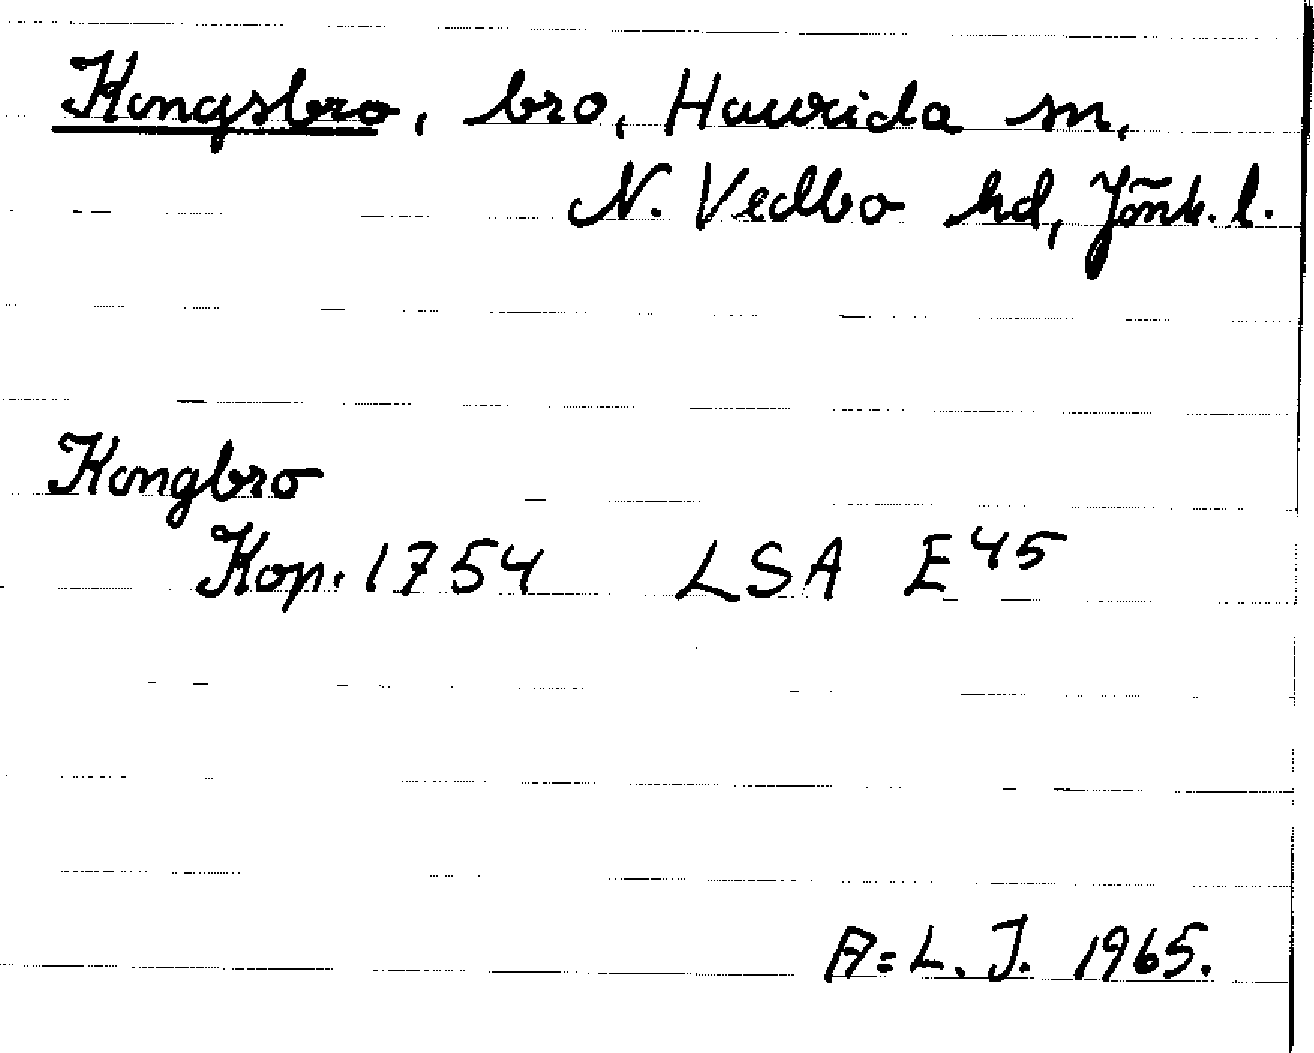 Kongsbro, bro, Haurida sn,
N. Vedbo hd, Jönk. l.
Kongbro
Kop. 1754 LSA E45
A=L. J. 1965.